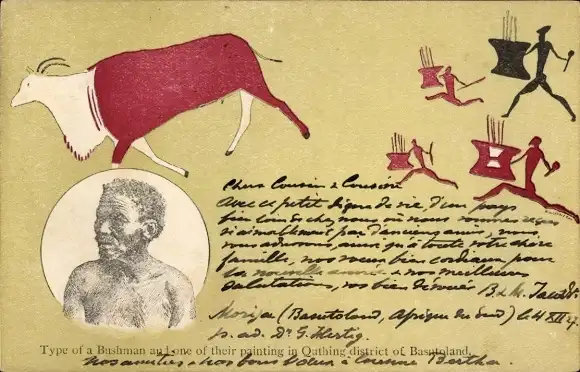 Chers Cousin & Cousine
Avec ce petit signe de vie, d'un pays
bien loin de chez nous où nous sommes reçus
si aimablement par d'anciens amis, nous
vous adressons, ainsi qu'à toute votre chère
famille, nos vœux bien cordiaux pour
la nouvelle année & nos meilleures
salutations, vos bien dévoués B. & M. Jacot
Morija (Basutoland, Afrique du Sud) le 4 XII
p. ad. Dr G. Hertig.
Type of a Bushman and one of their painting in Quthing district of Basutoland.
Nos amitiés & nos bons vœux à cousine Bertha.